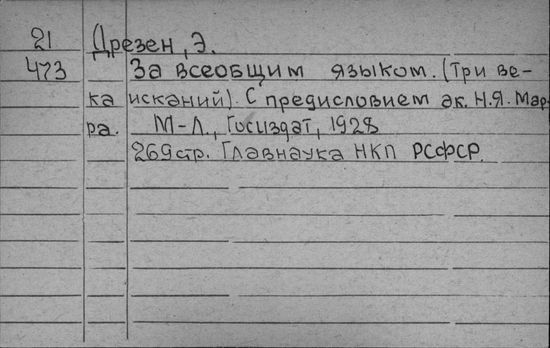 21 Дрезен, Э.
473 За всеобщим языком. (Три ве-
ка исканий). С предисловием ак. Н.Я. Мар-
ра. М-Л., Госиздат, 1928
269стр. Главнаука НКП РСФСР.